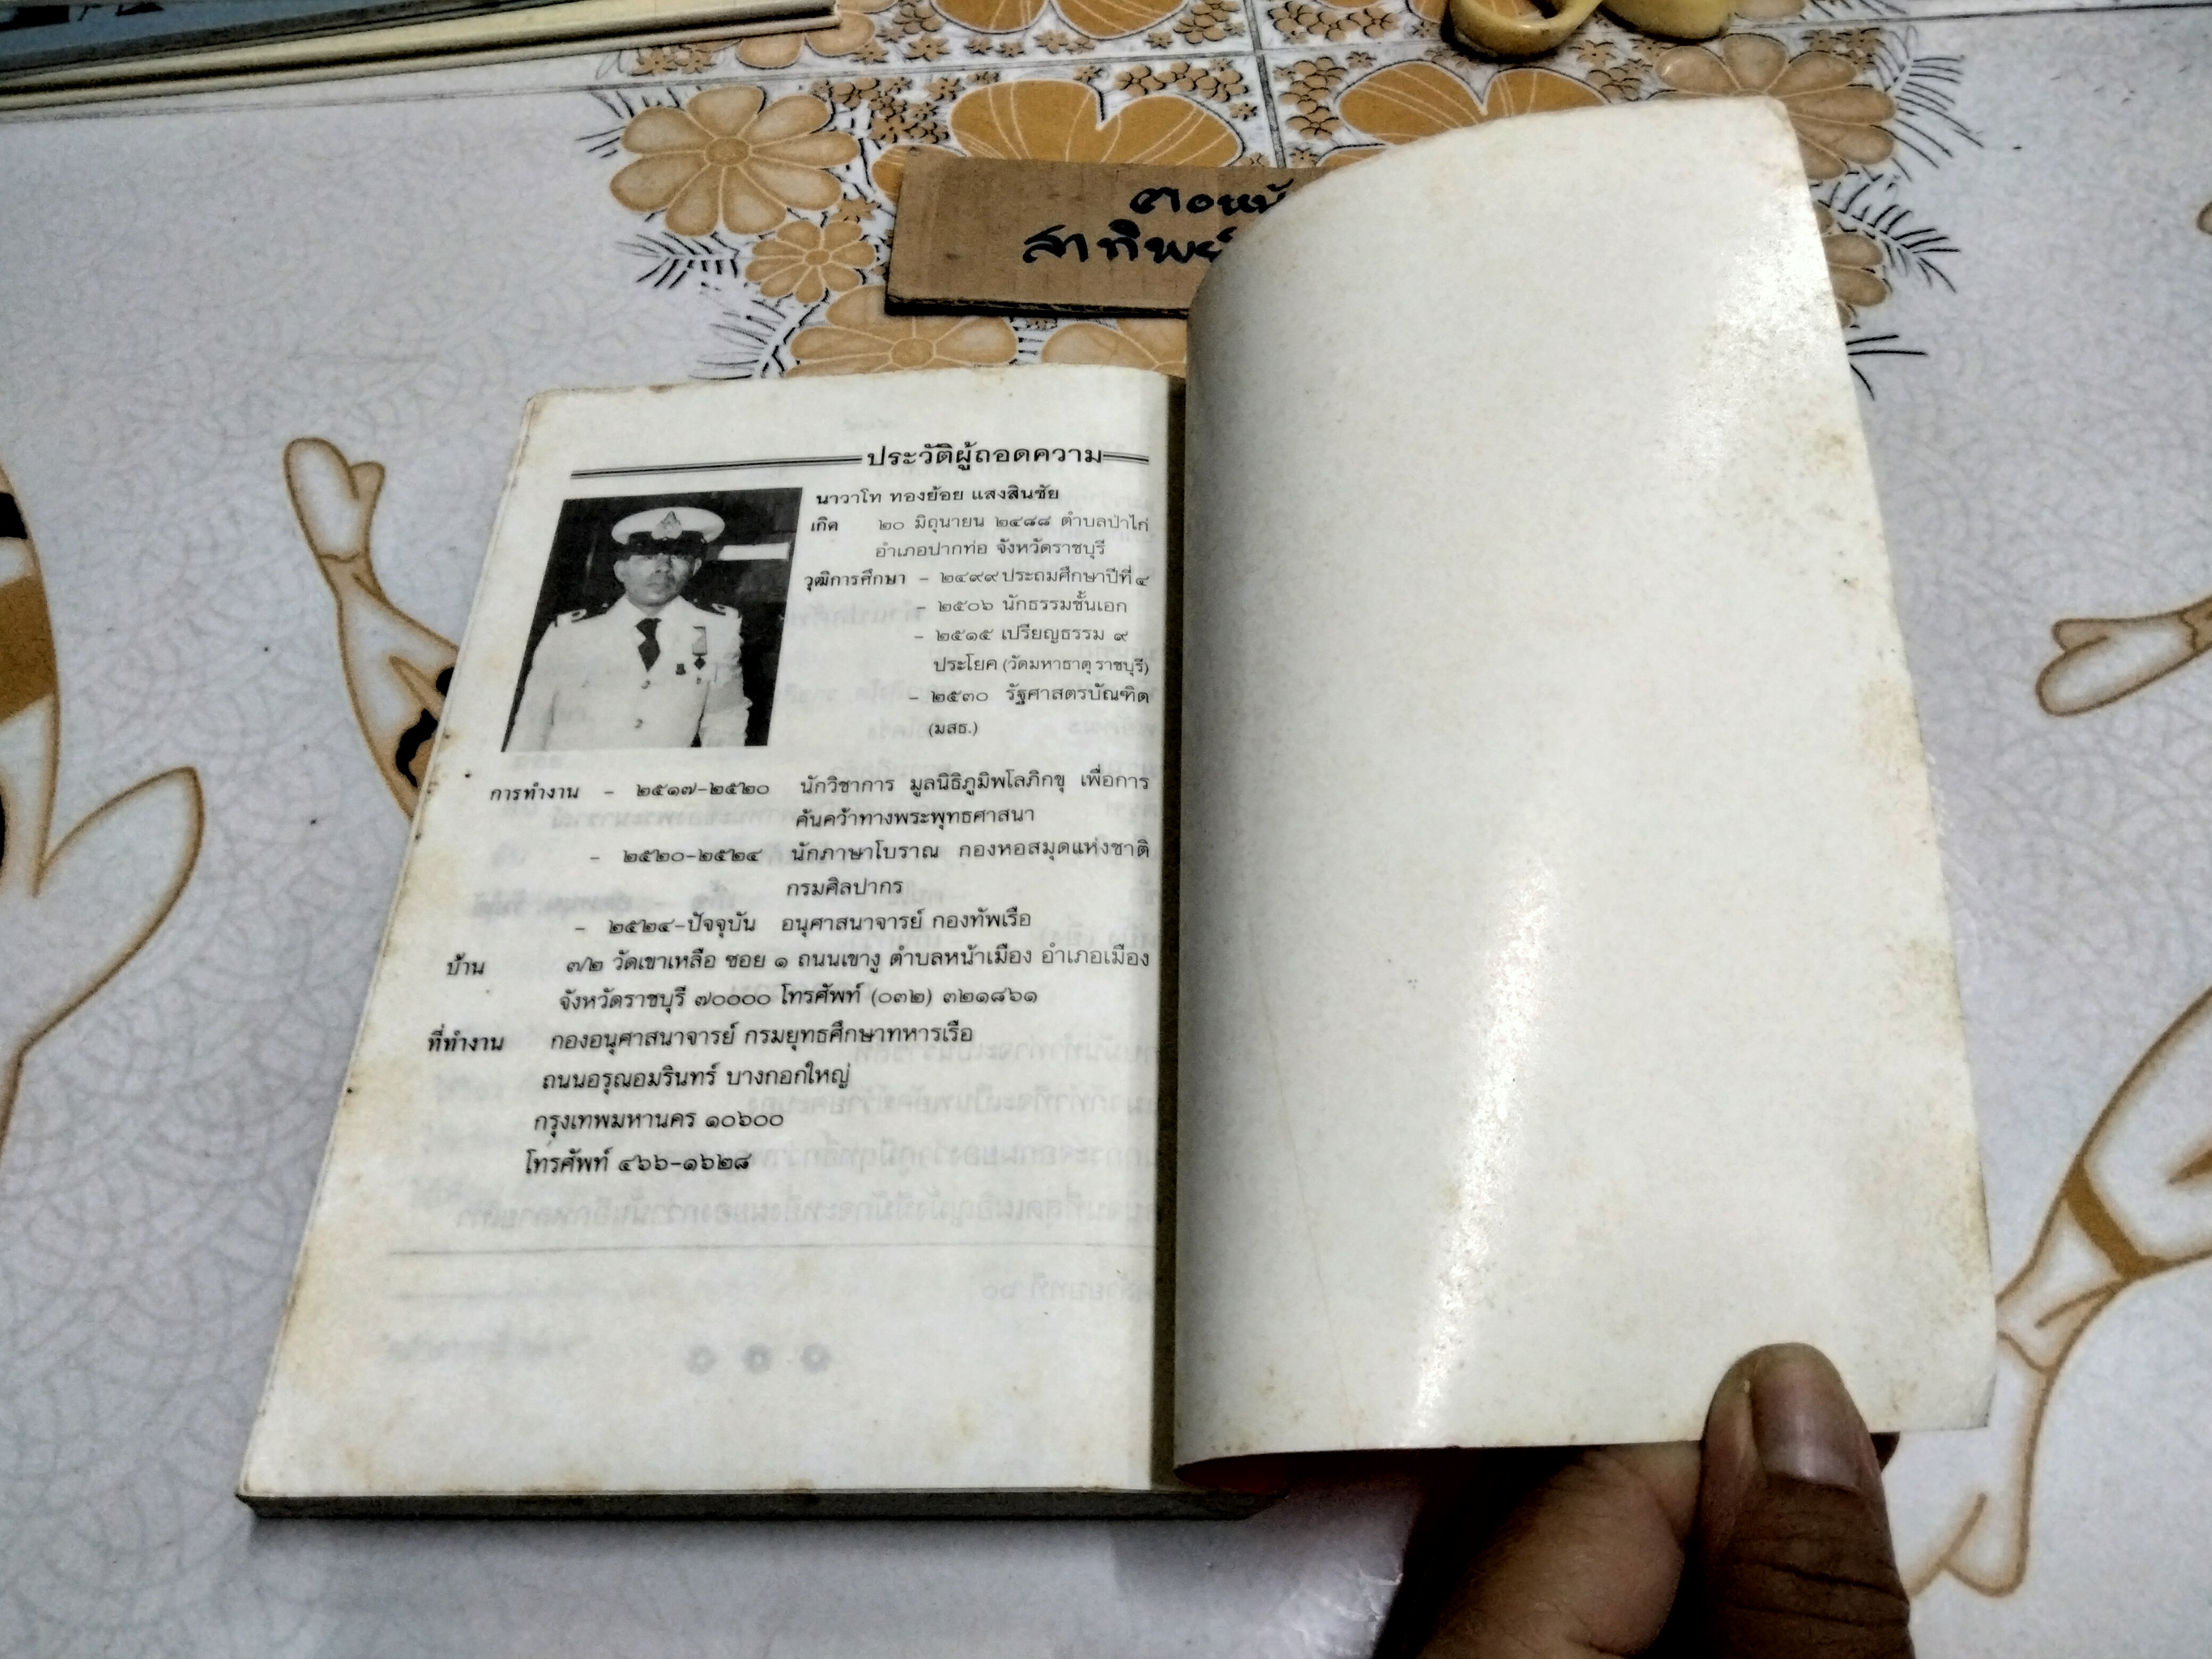 สาทิพย์
ประวัติผู้ถอดความ
นาวาโท ทองย้อย แสงสินชัย
เกิด ๒๐ มิถุนายน ๒๔๘๘ ตำบลป่าไก่
อำเภอปากท่อ จังหวัดราชบุรี
วุฒิการศึกษา - ๒๔๙๙ ประถมศึกษาปีที่ ๔
- ๒๕๐๖ นักธรรมชั้นเอก
- ๒๕๑๕ เปรียญธรรม ๙
ประโยค (วัดมหาธาตุ ราชบุรี)
- ๒๕๓๐ รัฐศาสตรบัณฑิต
(มสธ.)
การทำงาน - ๒๕๑๗-๒๕๒๐ นักวิชาการ มูลนิธิภูมิพโลภิกขุ เพื่อการ
ค้นคว้าทางพระพุทธศาสนา
- ๒๕๒๐-๒๕๒๔ นักภาษาโบราณ กองหอสมุดแห่งชาติ
กรมศิลปากร
- ๒๕๒๔-ปัจจุบัน อนุศาสนาจารย์ กองทัพเรือ
บ้าน ๓/๒ วัดเขาเหลือ ซอย ๑ ถนนเขางู ตำบลหน้าเมือง อำเภอเมือง
จังหวัดราชบุรี ๗๐๐๐๐ โทรศัพท์ (๐๓๒) ๓๒๑๘๖๑
ที่ทำงาน กองอนุศาสนาจารย์ กรมยุทธศึกษาทหารเรือ
ถนนอรุณอมรินทร์ บางกอกใหญ่
กรุงเทพมหานคร ๑๐๖๐๐
โทรศัพท์ ๔๖๖-๑๖๒๘